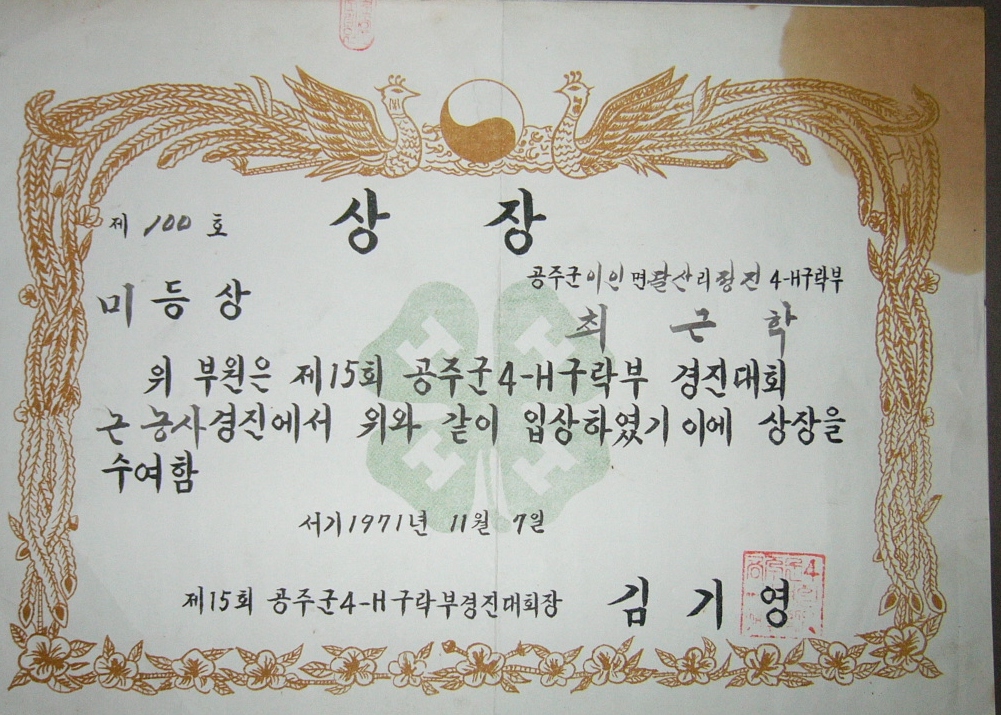 제 100 호
상 장
공주군 이인면 팔산리 정진 4-H구락부
미등상
최 근 학
위 부원은 제15회 공주군4-H구락부 경진대회
논농사경진에서 위와 같이 입상하였기 이에 상장을
수여함
서기1971년 11월 7일
제15회 공주군4-H구락부경진대회장 김 기 영